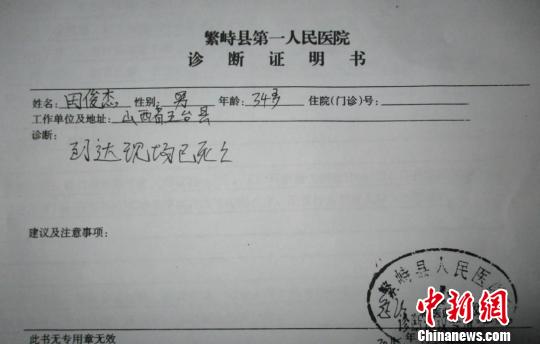 繁峙县第一人民医院
诊断证明书
姓名：田俊杰 性别：男 年龄：34岁 住院(门诊)号：
工作单位及地址：山西省五台县
诊断：
到达现场已死亡
建议及注意事项：
繁峙县人民医
中新网
.com
此书无专用章无效